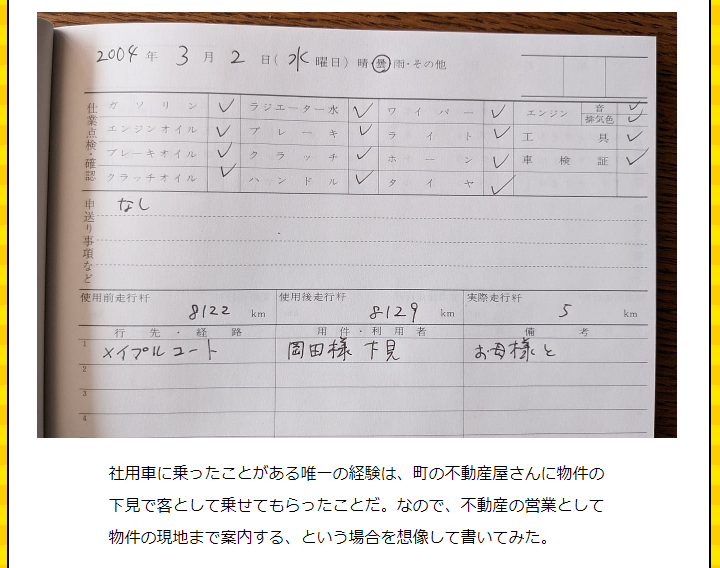 2004 年 3 月 2 日（水曜日）晴・曇・雨・その他
仕業点検・確認
ガソリン ✓ ラジエーター水 ✓ ワイパー ✓ エンジン 音 ✓
排気色 ✓
エンジンオイル ✓ ブレーキ ✓ ライト ✓ 工具 ✓
ブレーキオイル ✓ クラッチ ✓ ホーン ✓ 車検証 ✓
クラッチオイル ✓ ハンドル ✓ タイヤ ✓
申送り事項など
なし
使用前走行粁 8122 km 使用後走行粁 8129 km 実際走行粁 5 km
行先・経路 用件・利用者 備考
1 メイプルコート 岡田様 下見 お母様と
2
3
4
社用車に乗ったことがある唯一の経験は、町の不動産屋さんに物件の
下見で客として乗せてもらったことだ。なので、不動産の営業として
物件の現地まで案内する、という場合を想像して書いてみた。